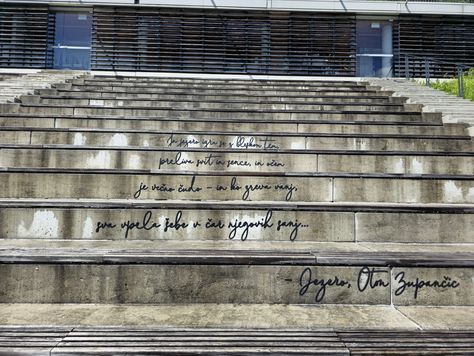 In jezero igra se s bleskom ten,
preliva svit in sence, in očem
je večno čudo - in ko zreva vanj,
sva vpela sebe v čar njegovih sanj...
- Jezero, Oton Zupančič